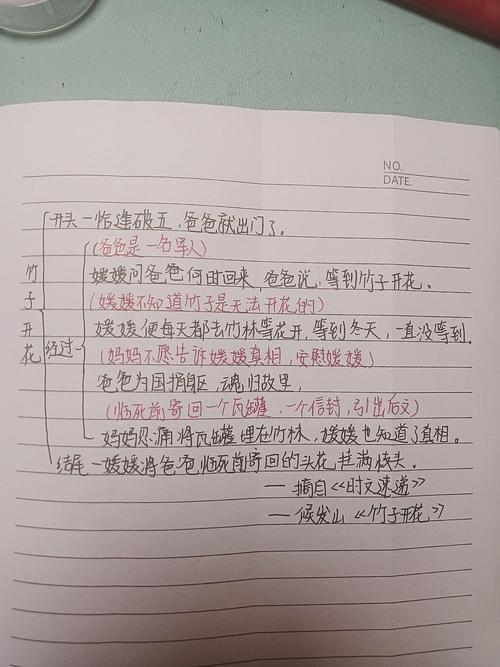 NO.
DATE.
竹子开花
开头 一恰逢破五,爸爸就出门了。
(爸爸是一名军人)
经过
媛媛问爸爸何时回来,爸爸说,等到竹子开花。
(媛媛不知道竹子是无法开花的)
媛媛便每天都去竹林等花开,等到冬天,一直没等到.
(妈妈不愿告诉媛媛真相,安慰媛媛)
爸爸为国捐躯,魂归故里,
(临死前寄回一个瓦罐,一个信封,引出后文)
妈妈忍痛将瓦罐埋在竹林,媛媛也知道了真相。
结尾 一媛媛将爸爸临死前寄回的头花,挂满枝头.
— 摘自《时文速递》
— 候发山《竹子开花》